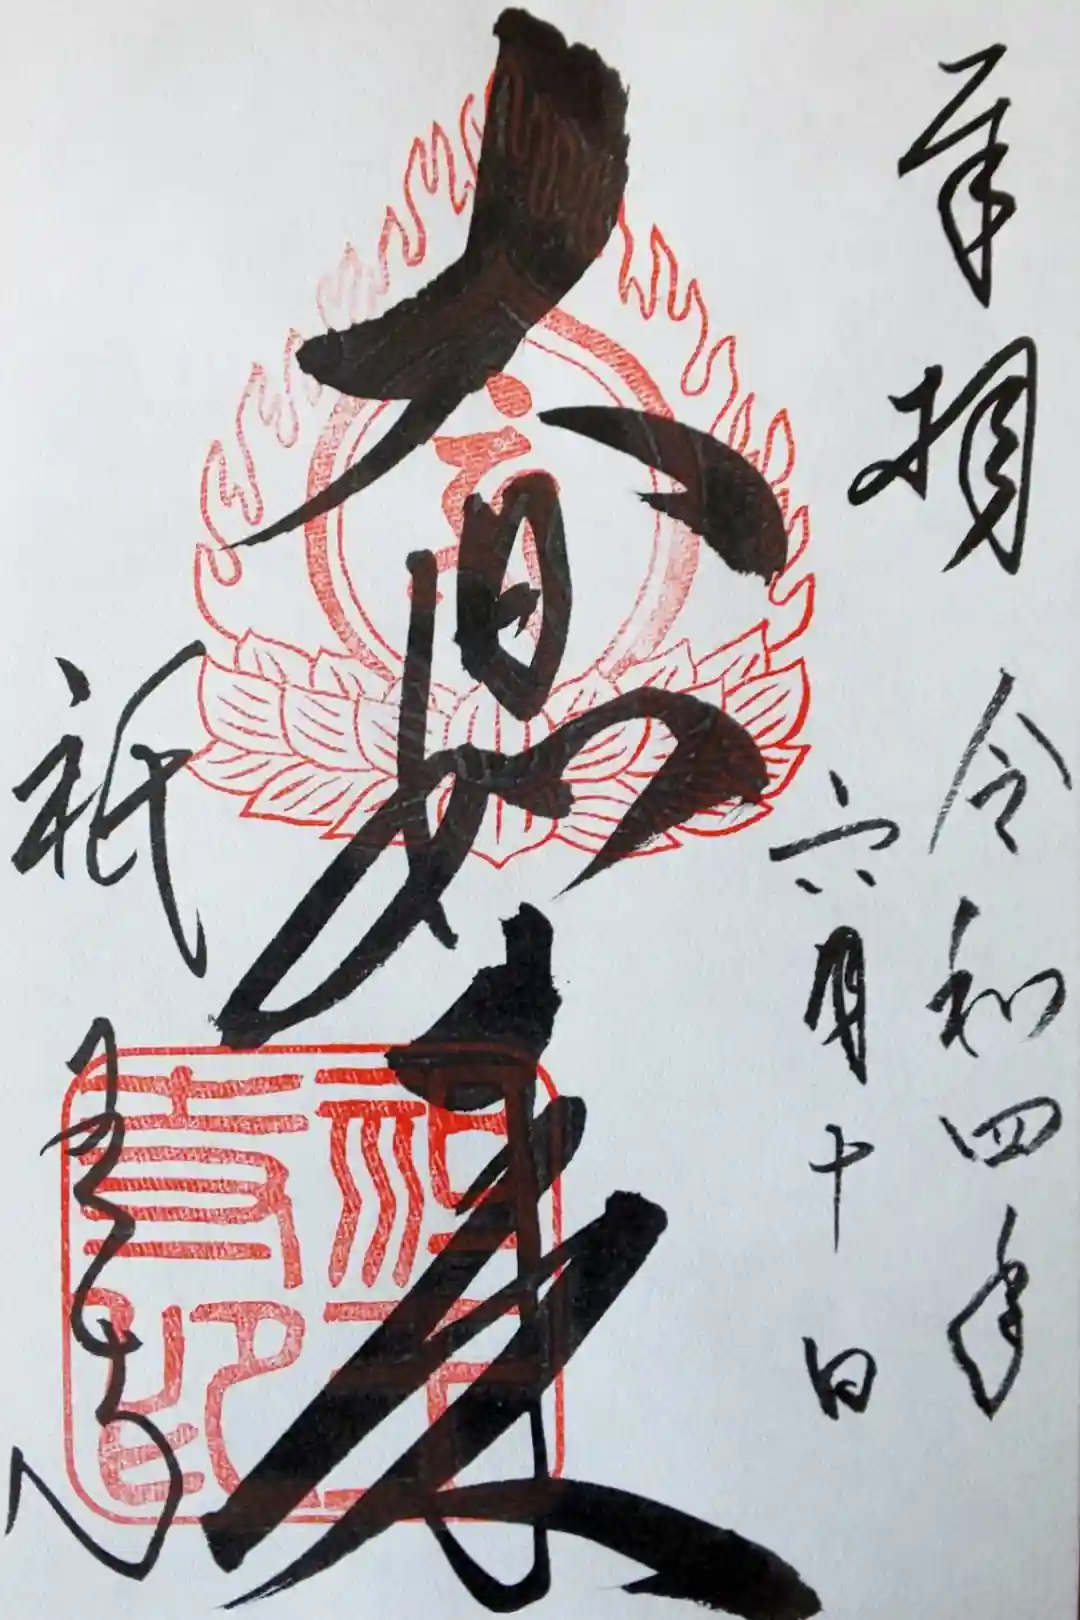 奉拝 令和四年
六月十日
大日如来
祇王寺
祇王寺印